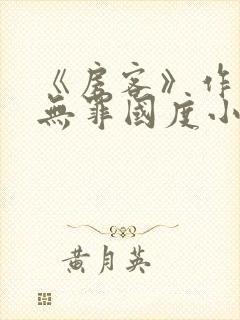 《房客》作
無罪國度小
黄月英